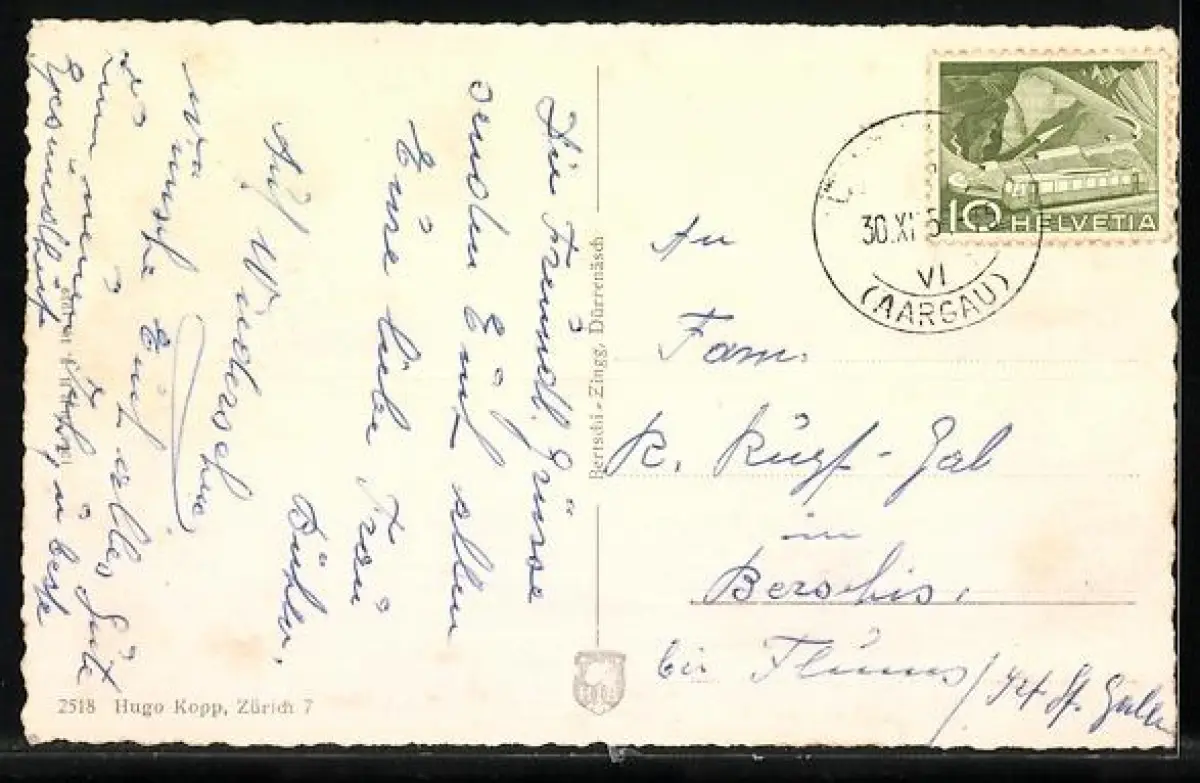 Die Freundl. Grüsse
senden Euch allen
Eure liebe Frau
Bühler.
Auf Wiedersehn
wünsche Euch alles Gute
zum neuen Jahr, u. beste
Gesundheit
Bertschi-Zingg, Dürrenäsch
2518 Hugo Kopp, Zürich 7
10 HELVETIA
30.XI
VI
(AARGAU)
An
Fam.
K.
in
Berschis,
bei Flums / St. Gallen